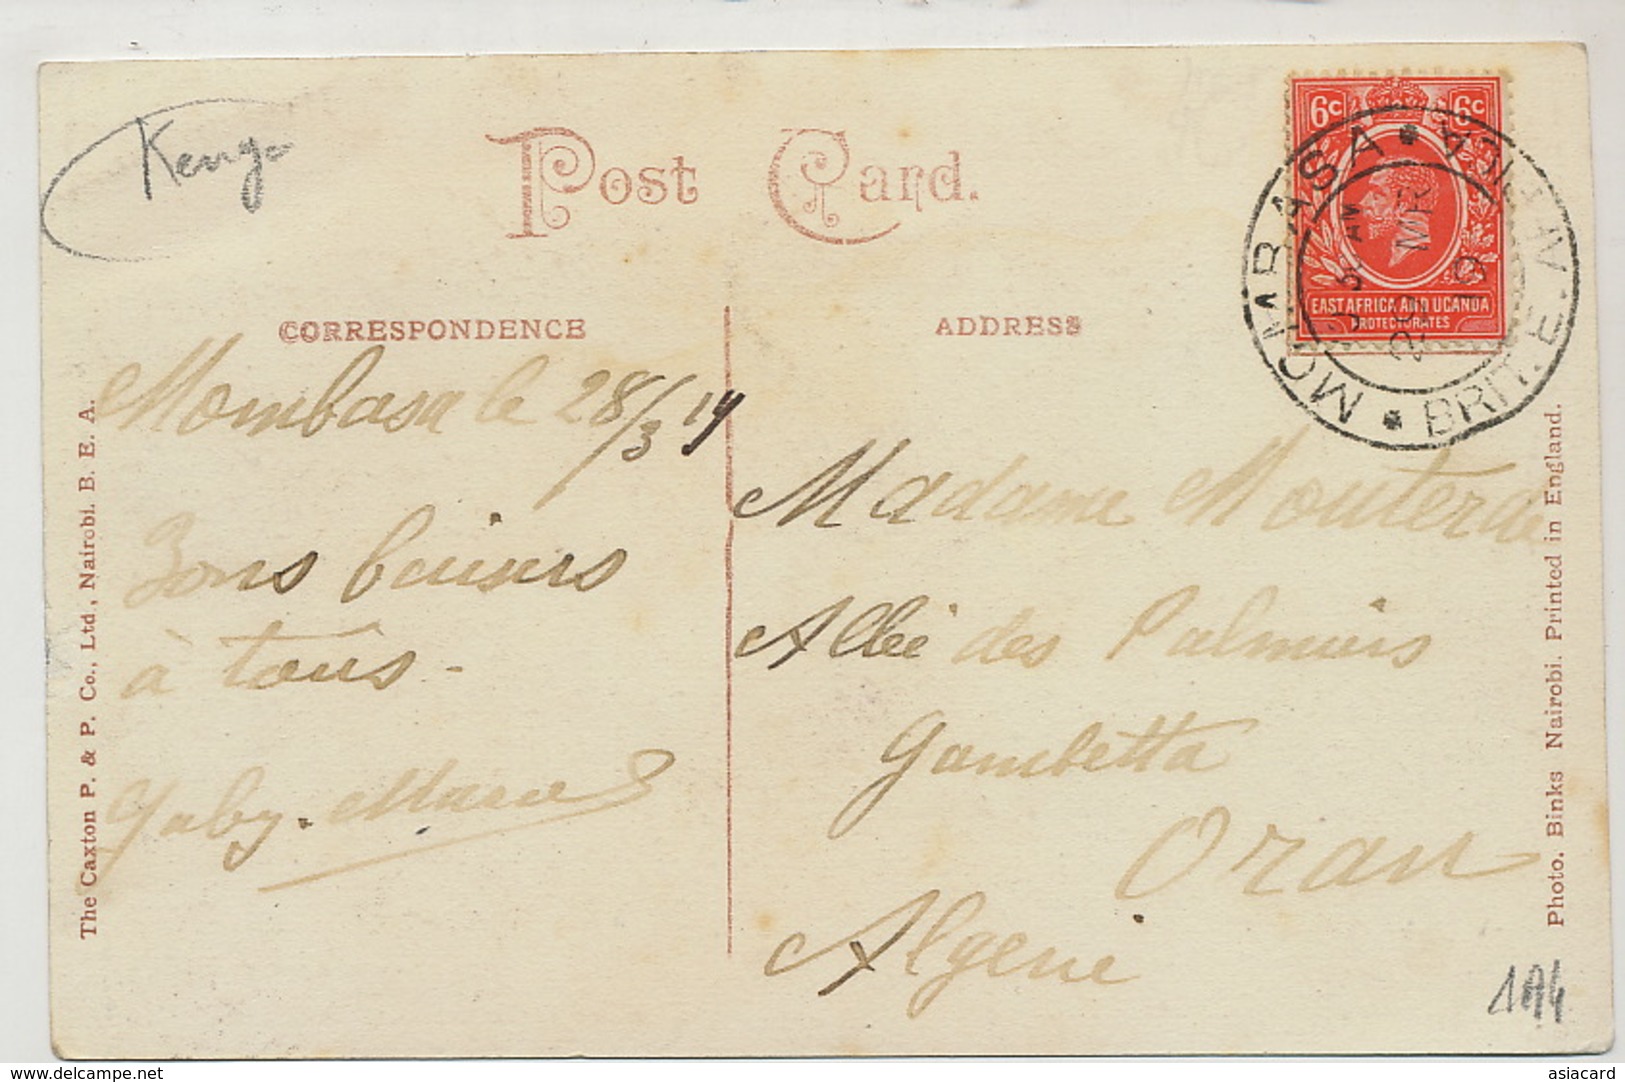 Kenya
Post Card.
6c 6c
EAST AFRICA AND UGANDA
PROTECTORATES
MOMBASA * BRIT. E. AFRICA *
AM
MR
19
CORRESPONDENCE
ADDRESS
Mombasa le 28/3 19
Bons baisers
à tous -
Gaby. Marie
Madame
Allée des Palmiers
Gambetta
Oran
Algerie
The Caxton P. & P. Co., Ltd, Nairobi. B. E. A.
Photo. Binks Nairobi. Printed in England.
www.delcampe.net
asiacard